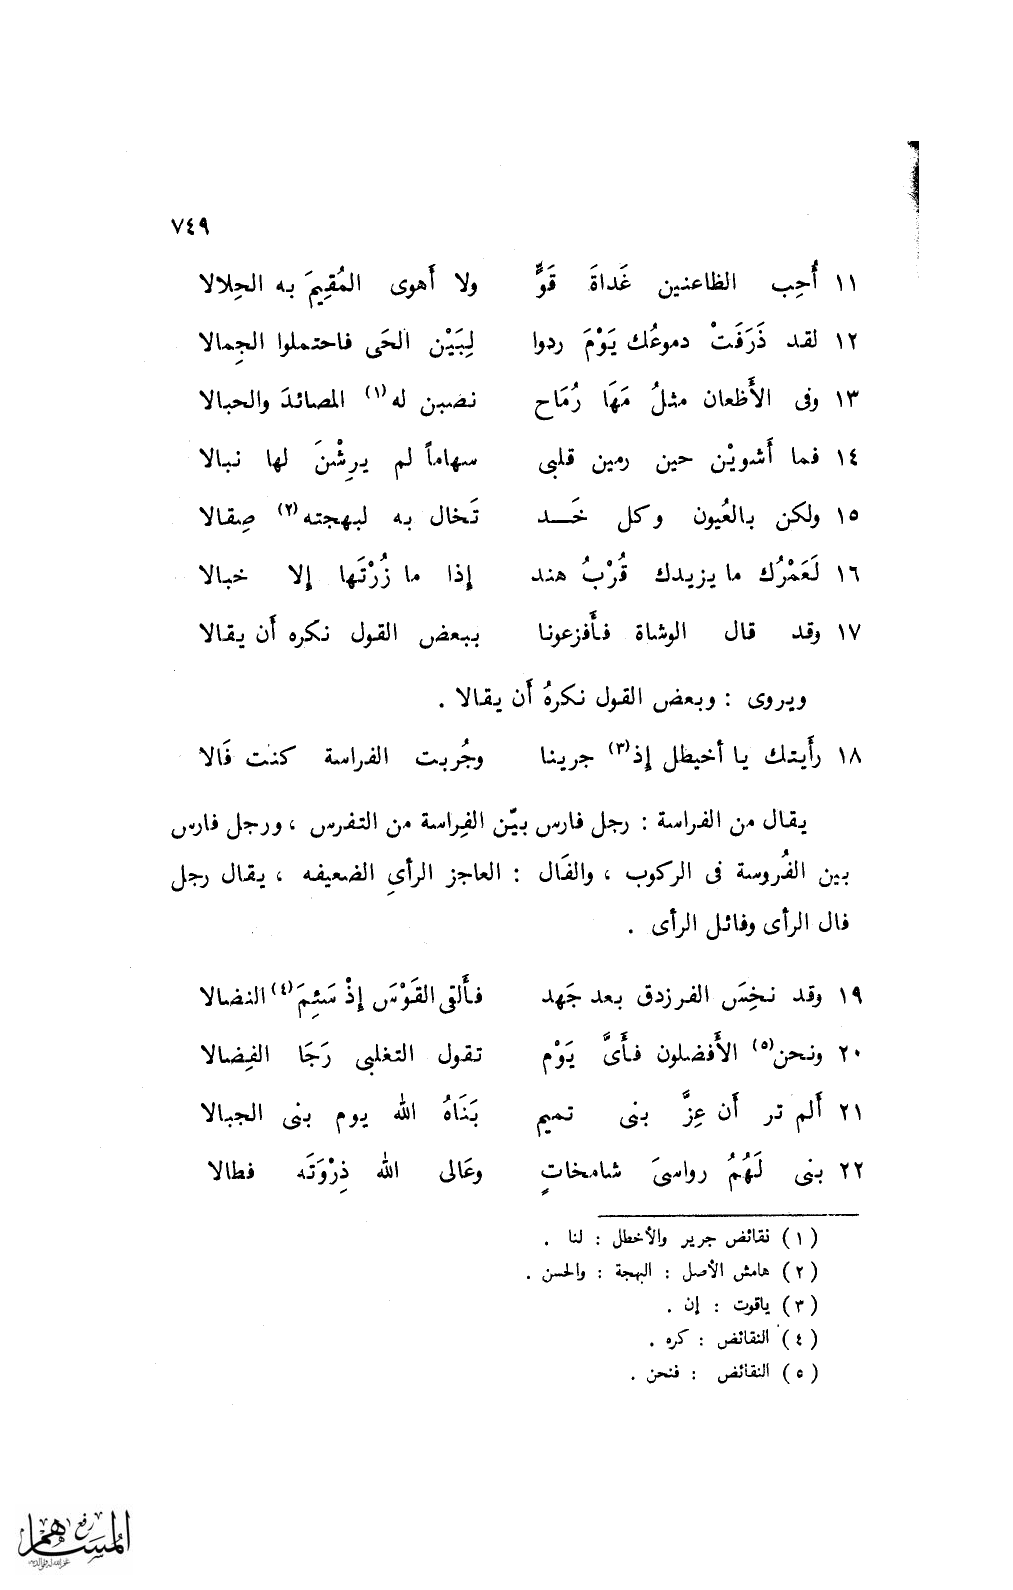 ٧٤٩
١١ أُحِب الظاعنين غَداةَ قَوٍّ ولا أَهوى المُقِيمَ به الحِلالا
١٢ لقد ذَرَفَتْ دموعُك يَوْمَ ردوا لِبَيْن الحَى فاحتملوا الجِمالا
١٣ وفى الأَظعان مثلُ مَهَا رُمَاح نصبن له(١) المصائدَ والحبالا
١٤ فما أَشويْن حين رمين قلبى سهاماً لم يرِشْنَ لها نبالا
١٥ ولكن بالعُيون وكل خَـــد تَخال به لبهجته(٢) صِقالا
١٦ لَعَمْرُك ما يزيدك قُرْبُ هند إذا ما زُرْتَها إلا خبالا
١٧ وقد قال الوشاة فأَفزعونا ببعض القول نكره أَن يقالا
ويروى : وبعض القول نكرهُ أَن يقالا .
١٨ رأَيتك يا أخيطل إذ(٣) جرينا وجُربت الفراسة كنت فَالا
يقال من الفراسة : رجل فارس بيّن الفِراسة من التفرس ، ورجل فارس
بين الفُروسة فى الركوب ، والفَال : العاجز الرأىِ الضعيفه ، يقال رجل
فال الرأى وفائل الرأى .
١٩ وقد نخِسَ الفرزدق بعد جَهد فأَلقى القَوْسَ إذْ سَئِمَ(٤) النضالا
٢٠ ونحن(٥) الأَفضلون فأَىَّ يَوْم تقول التغلبى رَجَا الفِضالا
٢١ أَلم تر أَن عِزَّ بنى تميم بَنَاهُ الله يوم بنى الجبالا
٢٢ بنى لَهُمُ رواسىَ شامخاتٍ وعَالى الله ذِرْوَتَه فطالا
(١) نقائض جرير والأخطل : لنا .
(٢) هامش الأصل : البهجة : والحسن .
(٣) ياقوت : إن .
(٤) النقائض : كره .
(٥) النقائض : فنحن .
رفع
المساهم